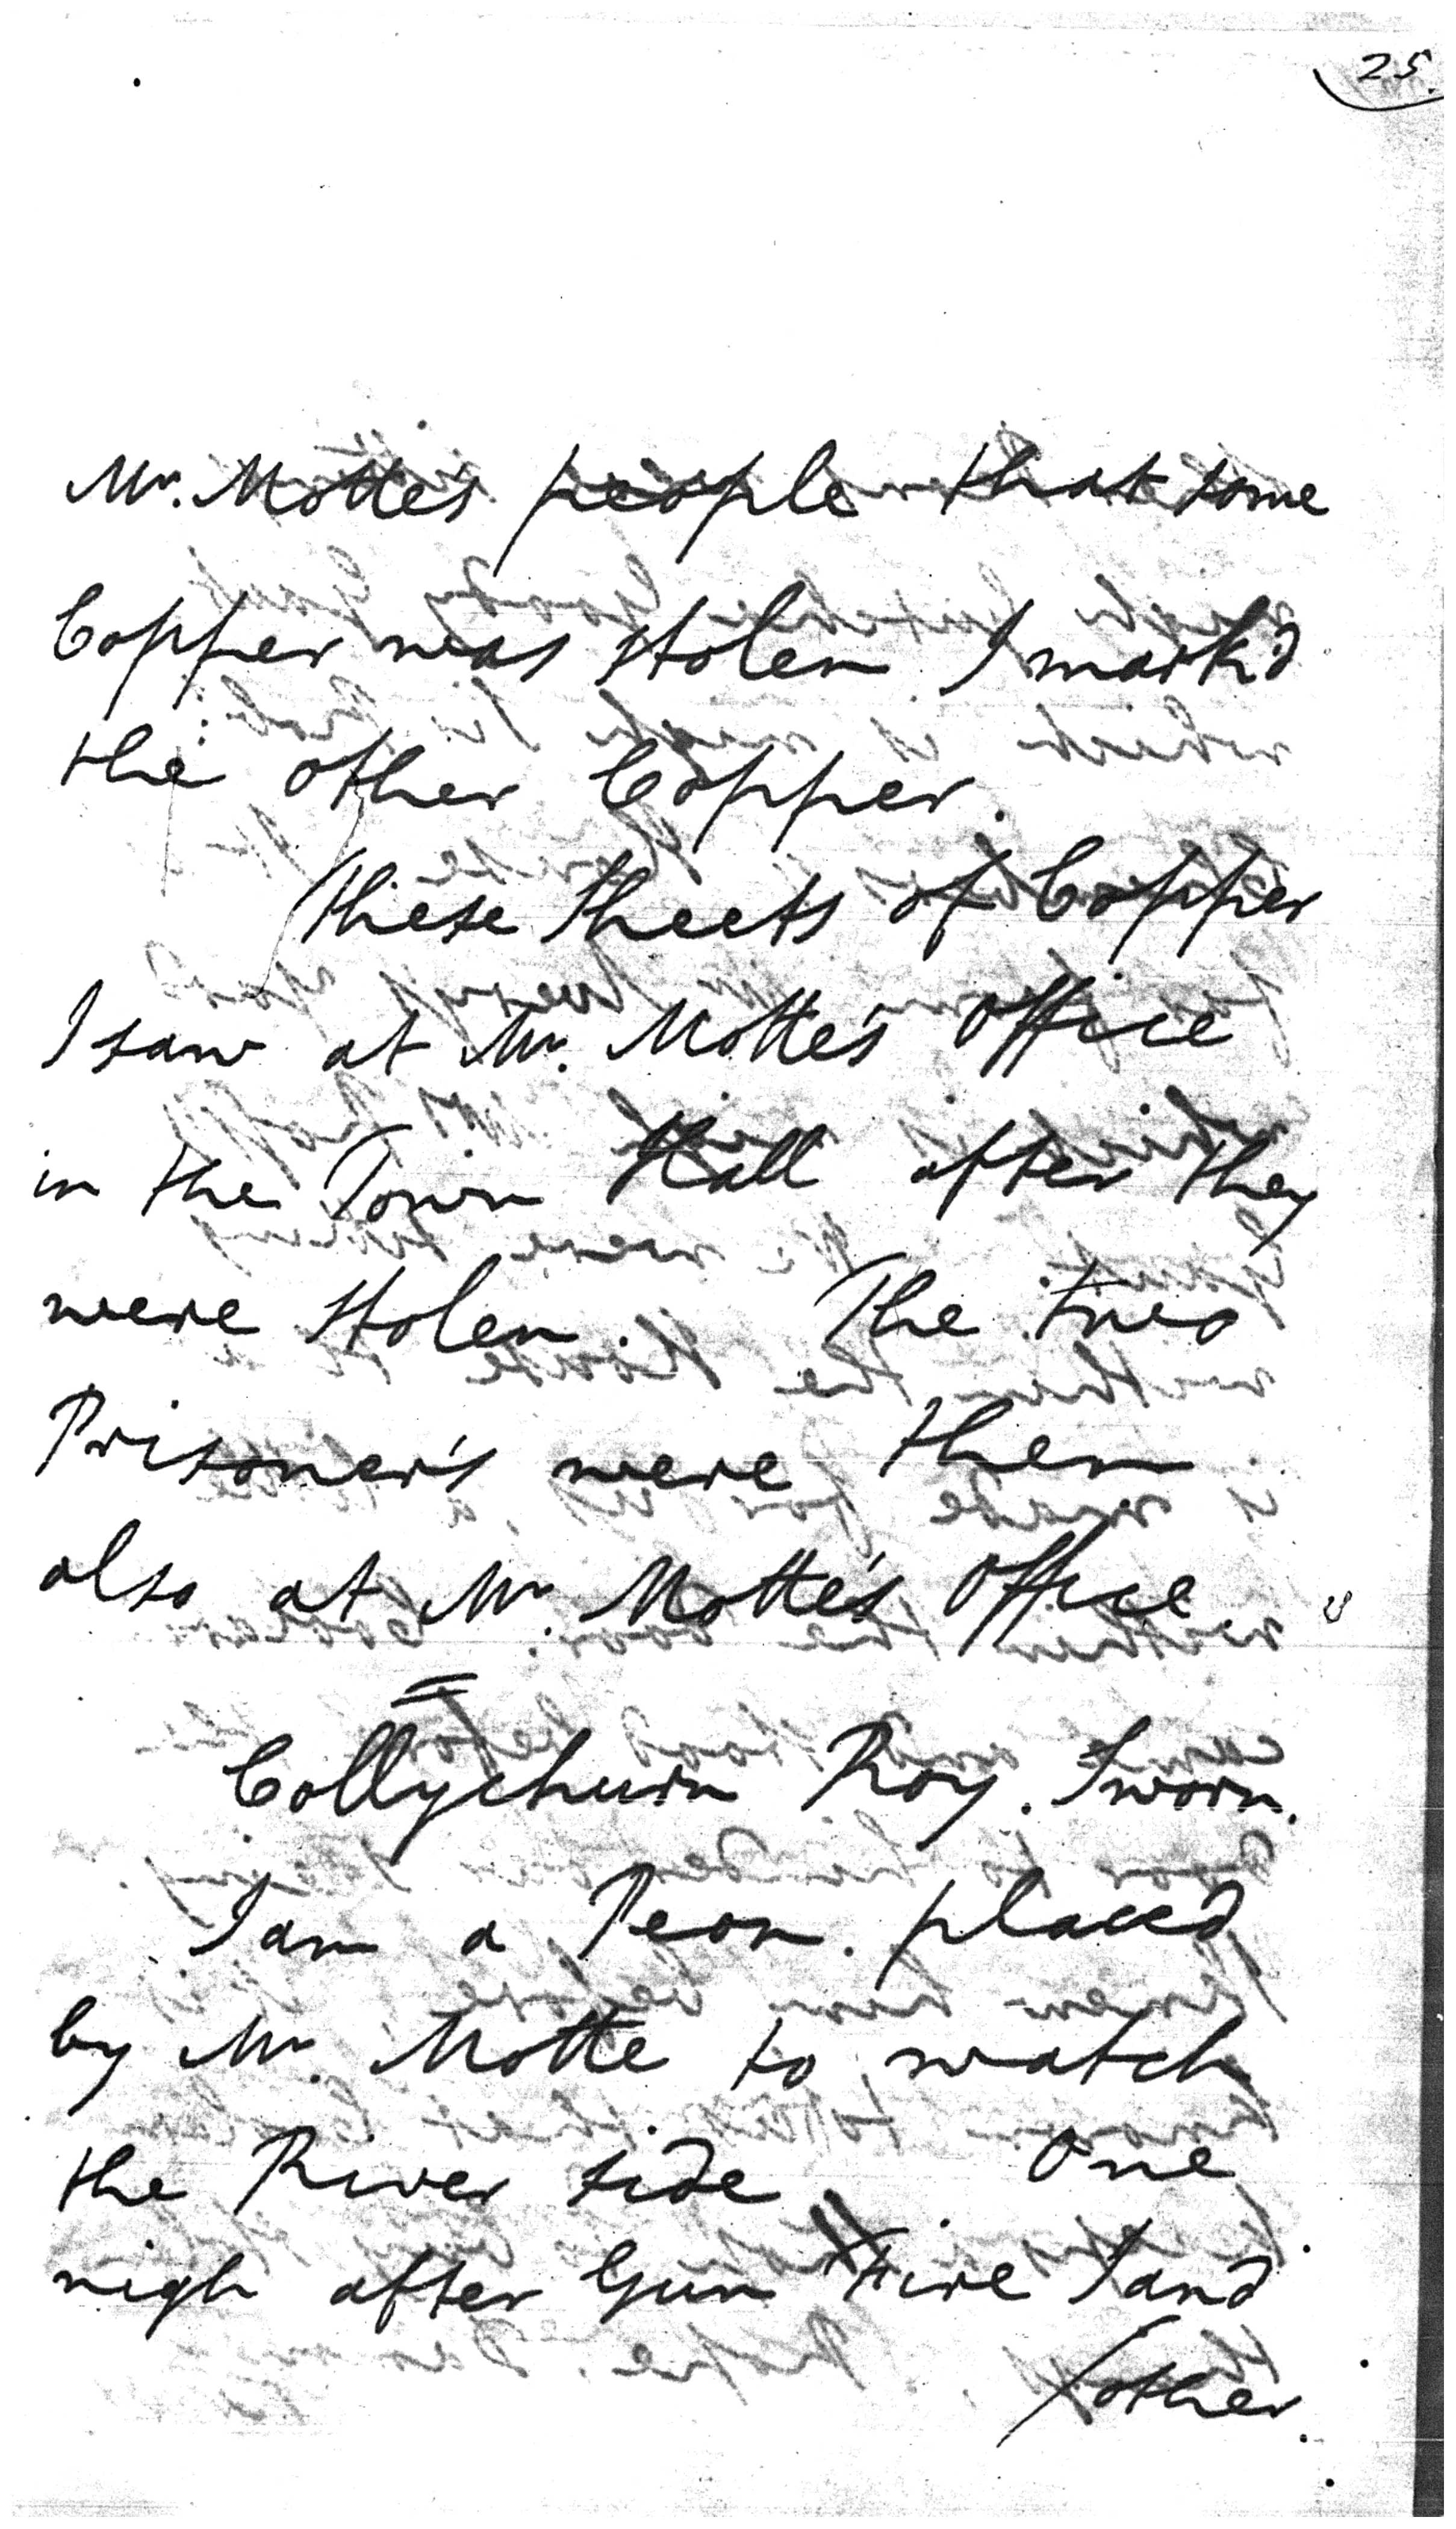 25.
Mr. Motte's people that some
Copper was stolen I mark'd
the other Copper.
These sheets of Copper
I saw at Mr. Motte's Office
in the Town Hall after they
were stolen. The two
Prisoner's were then
also at Mr. Motte's Office.
Collychurn Roy. Sworn.
I am a Peon placed
by Mr. Motte to watch
the River side. One
nigh after Gun Fire I and
/other.